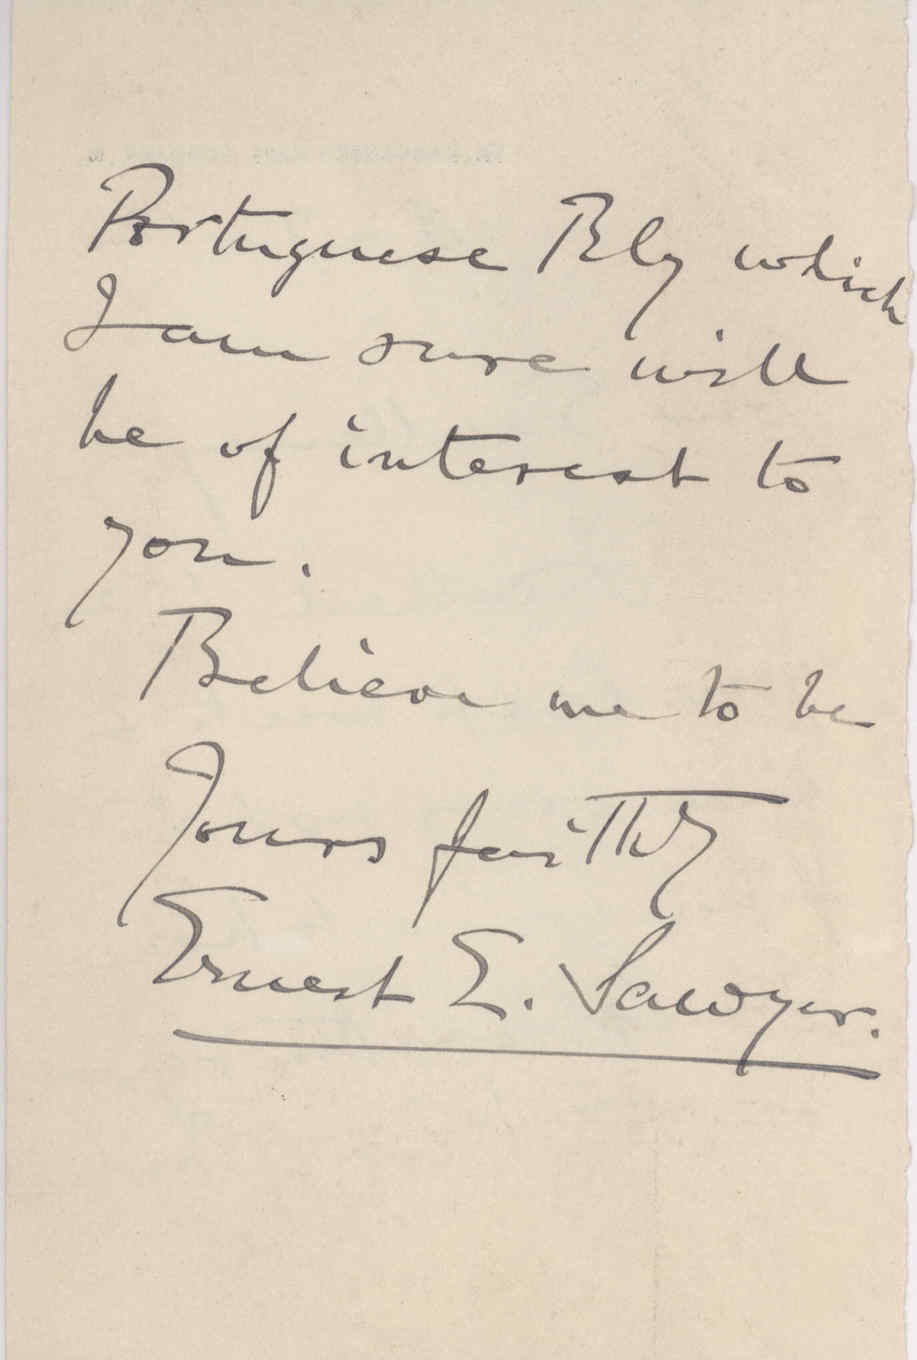 Portuguese Rly which
I am sure will
be of interest to
you.
Believe me to be
Yours faithly
Ernest E. Sawyer.